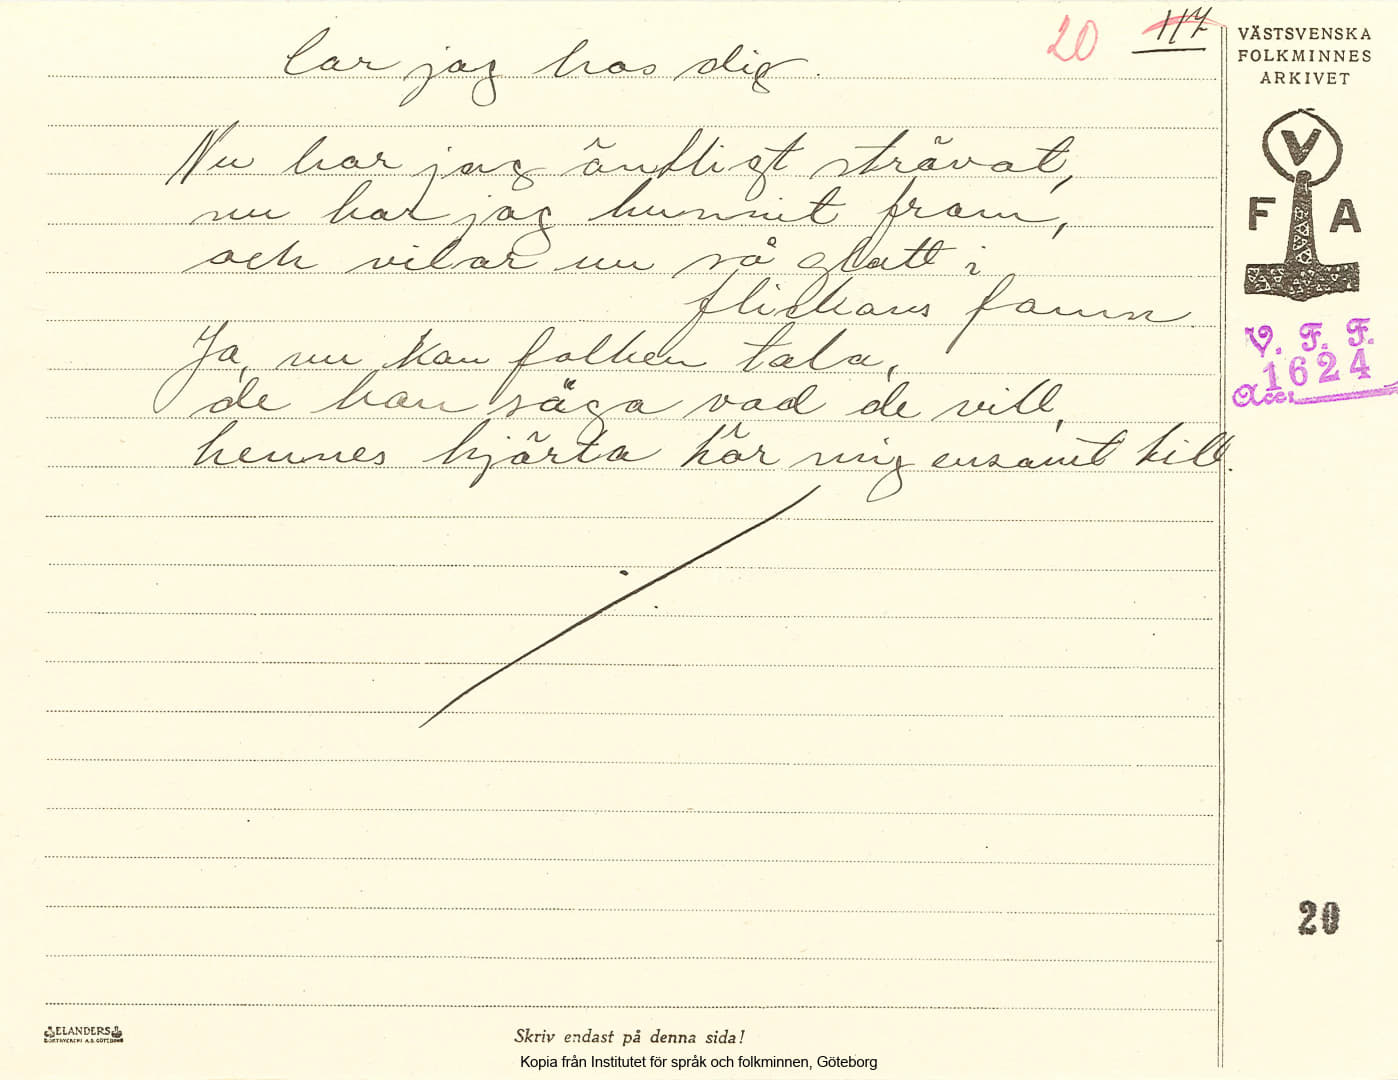 20 117
lar jag hos dig.
Nu har jag äntligt strävat,
nu har jag hunnit fram,
och vilar nu så glatt i
flickans famn.
Ja, nu kan folken tala,
de kan säga vad de vill,
hennes hjärta hör mig ensamt till.
VÄSTSVENSKA
FOLKMINNES
ARKIVET
V
F A
V. F. F.
1624
Acc:
20
ELANDERS
BOKTRYCKERI A.B. GÖTEBORG
Skriv endast på denna sida!
Kopia från Institutet för språk och folkminnen, Göteborg